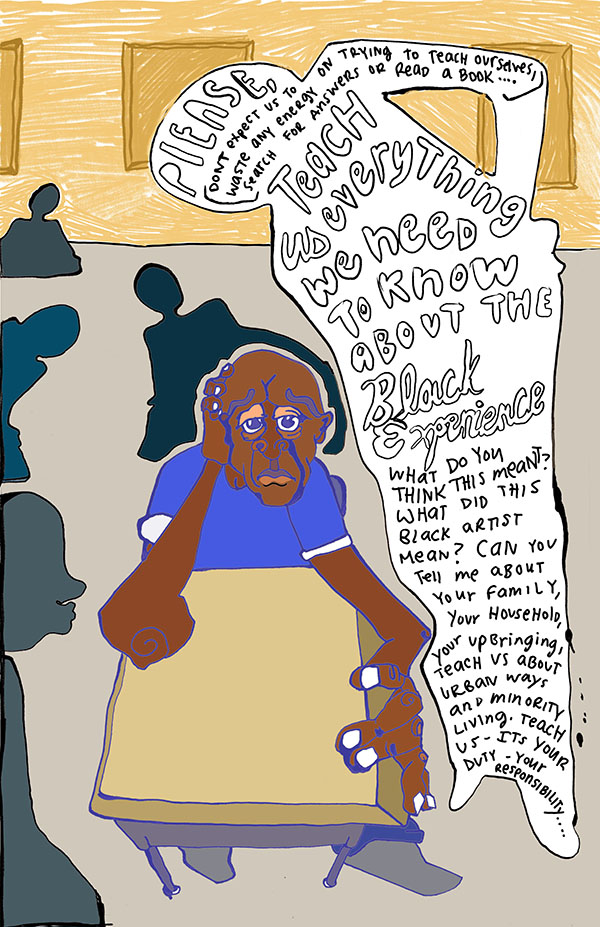 PLEASE,
(DON'T EXPECT US TO
WASTE ANY ENERGY ON TRYING TO TEACH OURSELVES,
SEARCH FOR ANSWERS OR READ A BOOK....
TEACH
US EVERYTHING
WE NEED
TO KNOW
ABOUT THE
Black
Experience
WHAT DO YOU
THINK THIS MEANT?
WHAT DID THIS
BLACK ARTIST
MEAN? CAN YOU
TELL ME ABOUT
YOUR FAMILY,
YOUR HOUSEHOLD,
YOUR UPBRINGING,
TEACH US ABOUT
URBAN WAYS
AND MINORITY
LIVING. TEACH
US - ITS YOUR
DUTY - YOUR
RESPONSIBILITY....